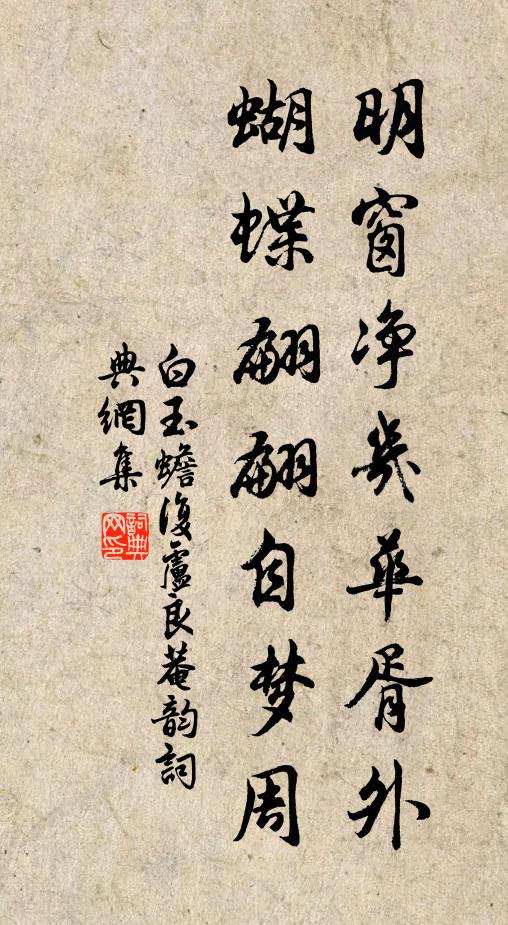 明窗净几华胥外
蝴蝶翩翩自梦周
白玉蟾復盧良菴韵詞
典網集
詞典网印